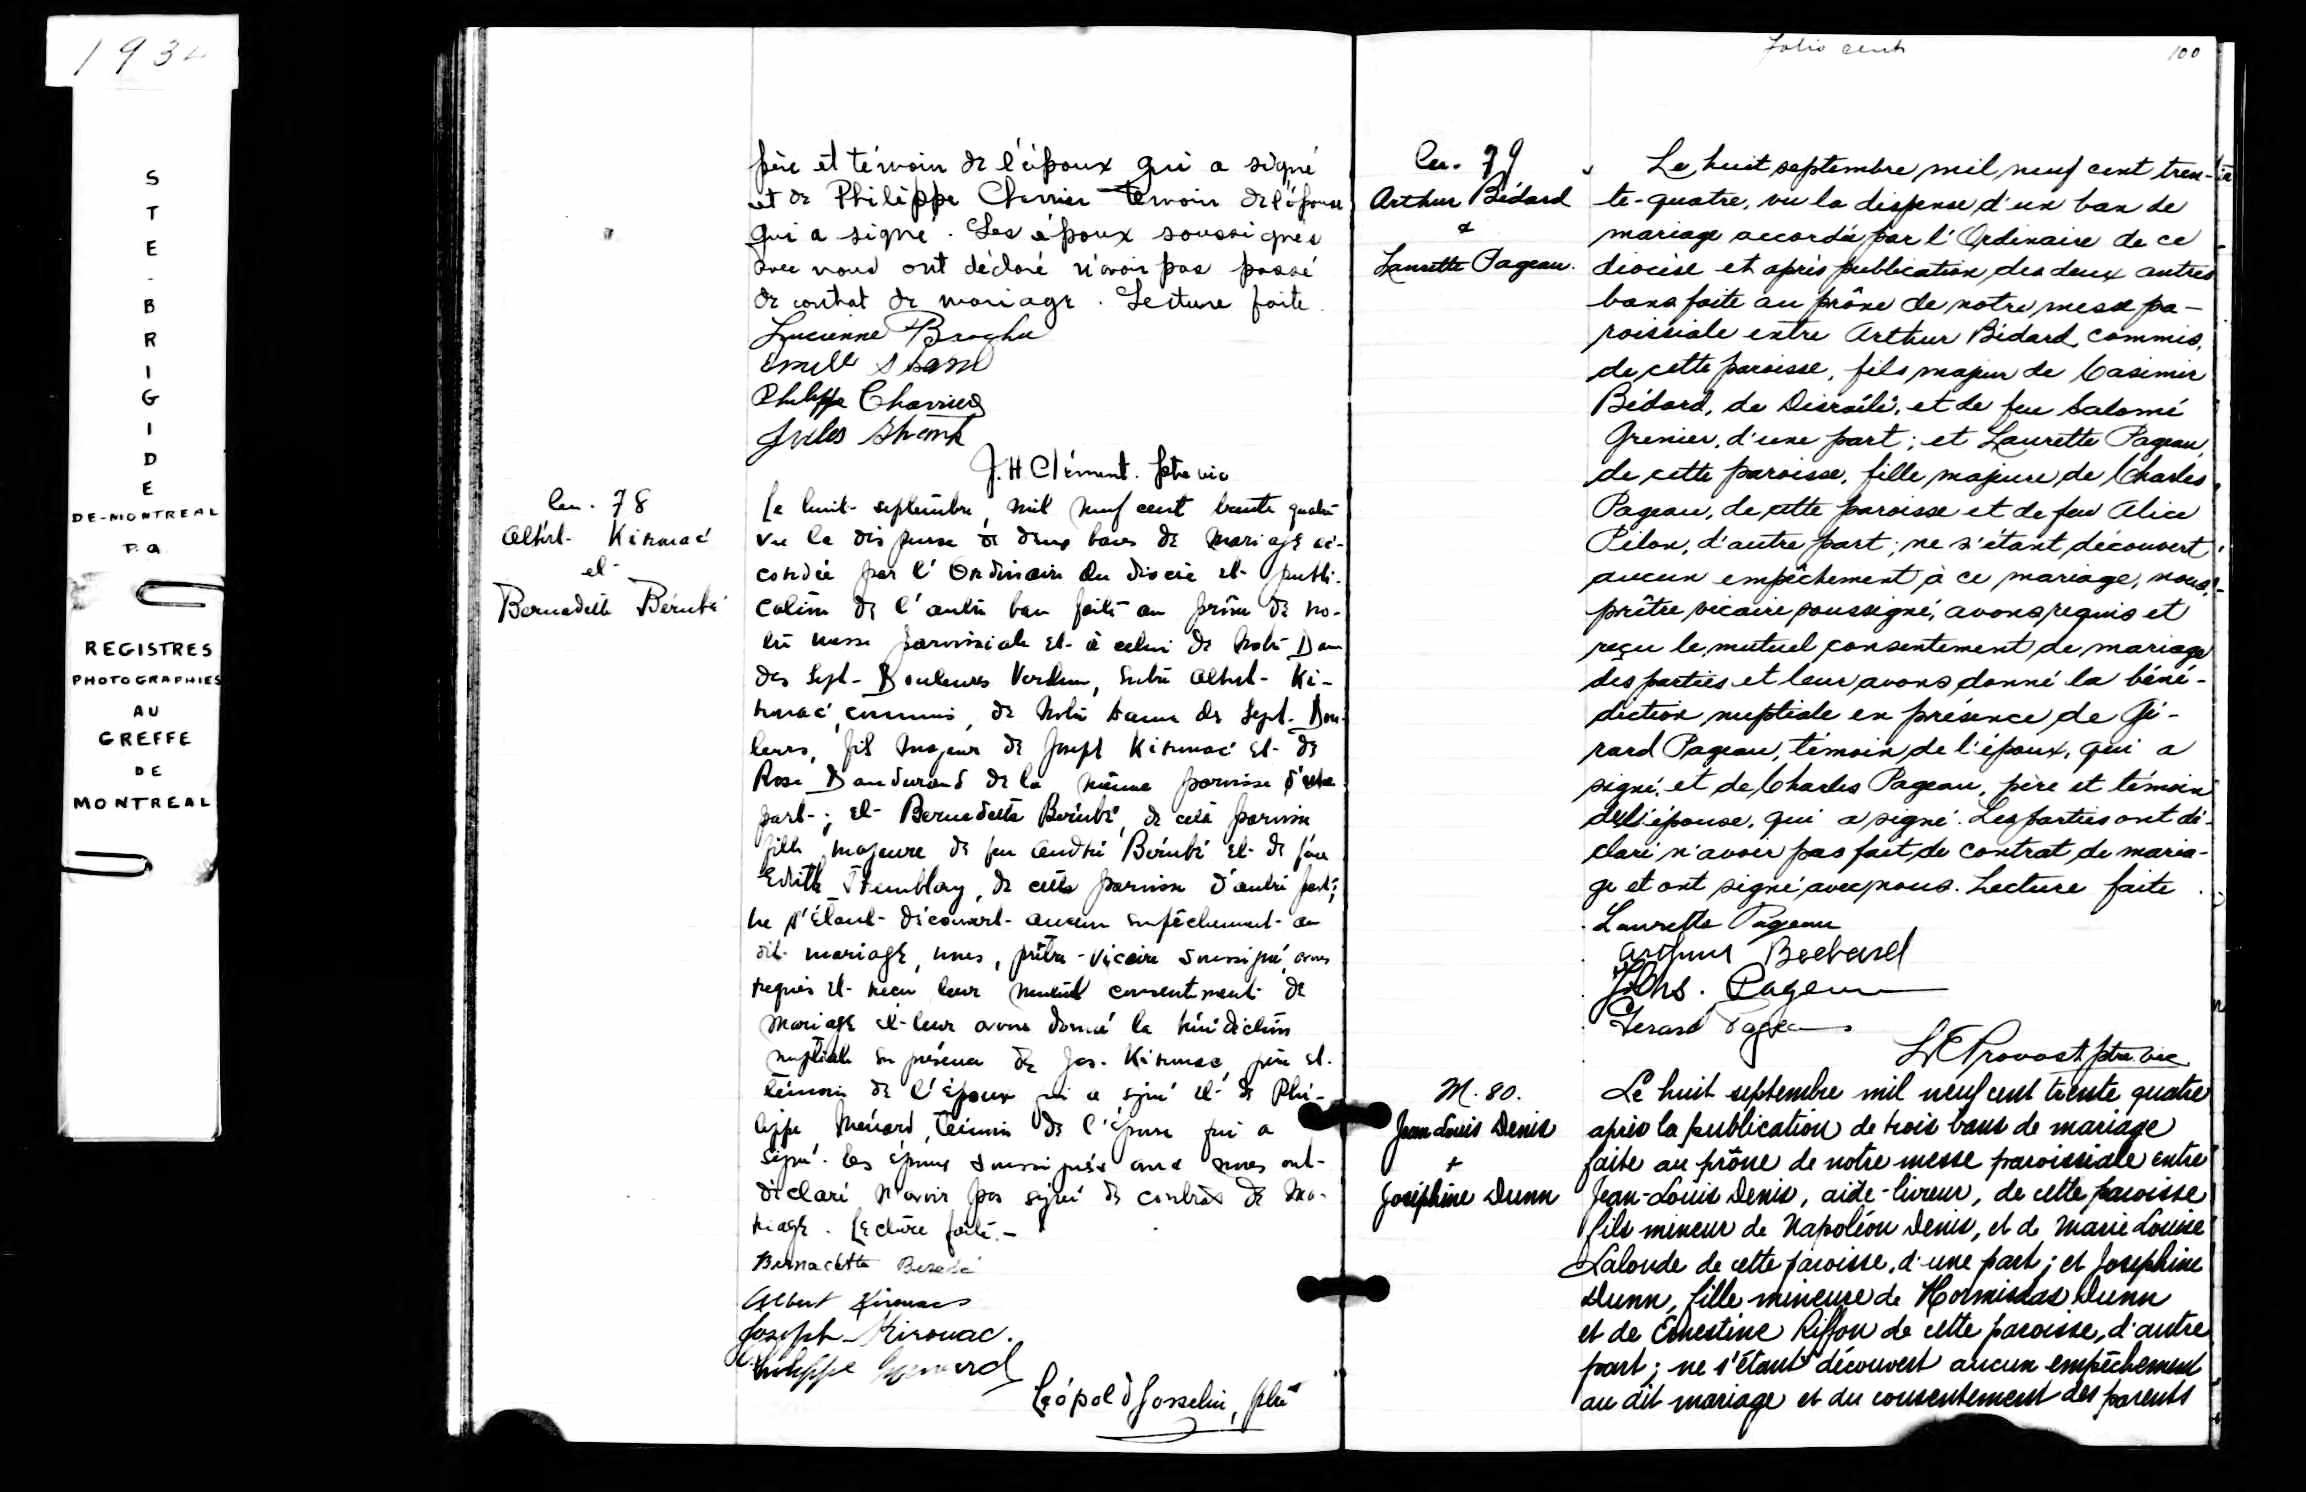 1934
STE-BRIGIDE
DE-MONTREAL
P.Q.
REGISTRES
PHOTOGRAPHIES
AU
GREFFE
DE
MONTREAL
père et témoin de l'époux qui a signé
et de Philippe Charrier témoin de l'épouse
qui a signé. Les époux soussignés
avec nous ont déclaré n'avoir pas passé
de contrat de mariage. Lecture faite.
Lucienne Brochu
Philippe Charrier
Jules
J. H Clément. ptre vic
78
Albert Kirouac
et
Bernadette Bérubé
Le huit septembre, mil neuf cent trente quatre
vu la dispense de deux bans de mariage ac-
cordée par l'Ordinaire du diocèse et publi-
cation de l'autre ban faite au prône de no-
tre messe paroissiale et à celui de Notre Dame
des Sept-Douleurs Verdun, entre Albert Ki-
rouac, commis, de Notre Dame des Sept-Dou-
leurs, fils majeur de Joseph Kirouac et de
Rose Dandurand de la même paroisse d'une
part; et Bernadette Bérubé, de cette paroisse
fille majeure de feu André Bérubé et de feue
Edith Tremblay, de cette paroisse d'autre part;
ne s'étant découvert aucun empêchement au
dit mariage, nous, prêtre-vicaire soussigné, avons
requis et reçu leur mutuel consentement de
mariage et leur avons donné la bénédiction
nuptiale en présence de Jos. Kirouac, père et
témoin de l'époux qui a signé et de Phi-
lippe Ménard, témoin de l'épouse qui a
signé. Les époux soussignés avec nous ont
déclaré n'avoir pas signé de contrat de ma-
riage. Lecture faite.-
Bernadette Berubé
Albert Kirouac
Joseph Kirouac.
Philippe
Léopold Gosselin, ptre
Folio cent
100
79
Arthur Bédard
&
Laurette Pageau.
Le huit septembre mil neuf cent tren-
te-quatre, vu la dispense d'un ban de
mariage accordée par l'Ordinaire de ce
diocèse et après publication des deux autres
bans faite au prône de notre messe pa-
roissiale entre Arthur Bédard, commis,
de cette paroisse, fils majeur de Casimir
Bédard, de Disraéli, et de feu Salomé
Grenier, d'une part; et Laurette Pageau,
de cette paroisse, fille majeure de Charles
Pageau, de cette paroisse et de feu Alice
Pilon, d'autre part; ne s'étant découvert
aucun empêchement à ce mariage, nous,
prêtre vicaire soussigné, avons requis et
reçu le mutuel consentement de mariage
des parties et leur avons donné la béné-
diction nuptiale en présence de Gé-
rard Pageau, témoin de l'époux, qui a
signé, et de Charles Pageau, père et témoin
de l'épouse, qui a signé. Les parties ont dé-
claré n'avoir pas fait de contrat de maria-
ge et ont signé avec nous. Lecture faite.
Laurette Pageau
Arthur Bedard
Chs. Pageau
Gerard Pageau
Provost ptre vic
M. 80.
Jean Louis Denis
+
Joséphine Dunn
Le huit septembre mil neuf cent trente quatre
après la publication de trois bans de mariage
faite au prône de notre messe paroissiale entre
Jean-Louis Denis, aide-livreur, de cette paroisse
fils mineur de Napoléon Denis, et de Marie Louise
Lalonde de cette paroisse, d'une part; et Josephine
Dunn, fille mineure de Hormisdas Dunn
et de Ernestine Riffou de cette paroisse, d'autre
part; ne s'étant découvert aucun empêchement
au dit mariage et du consentement des parents